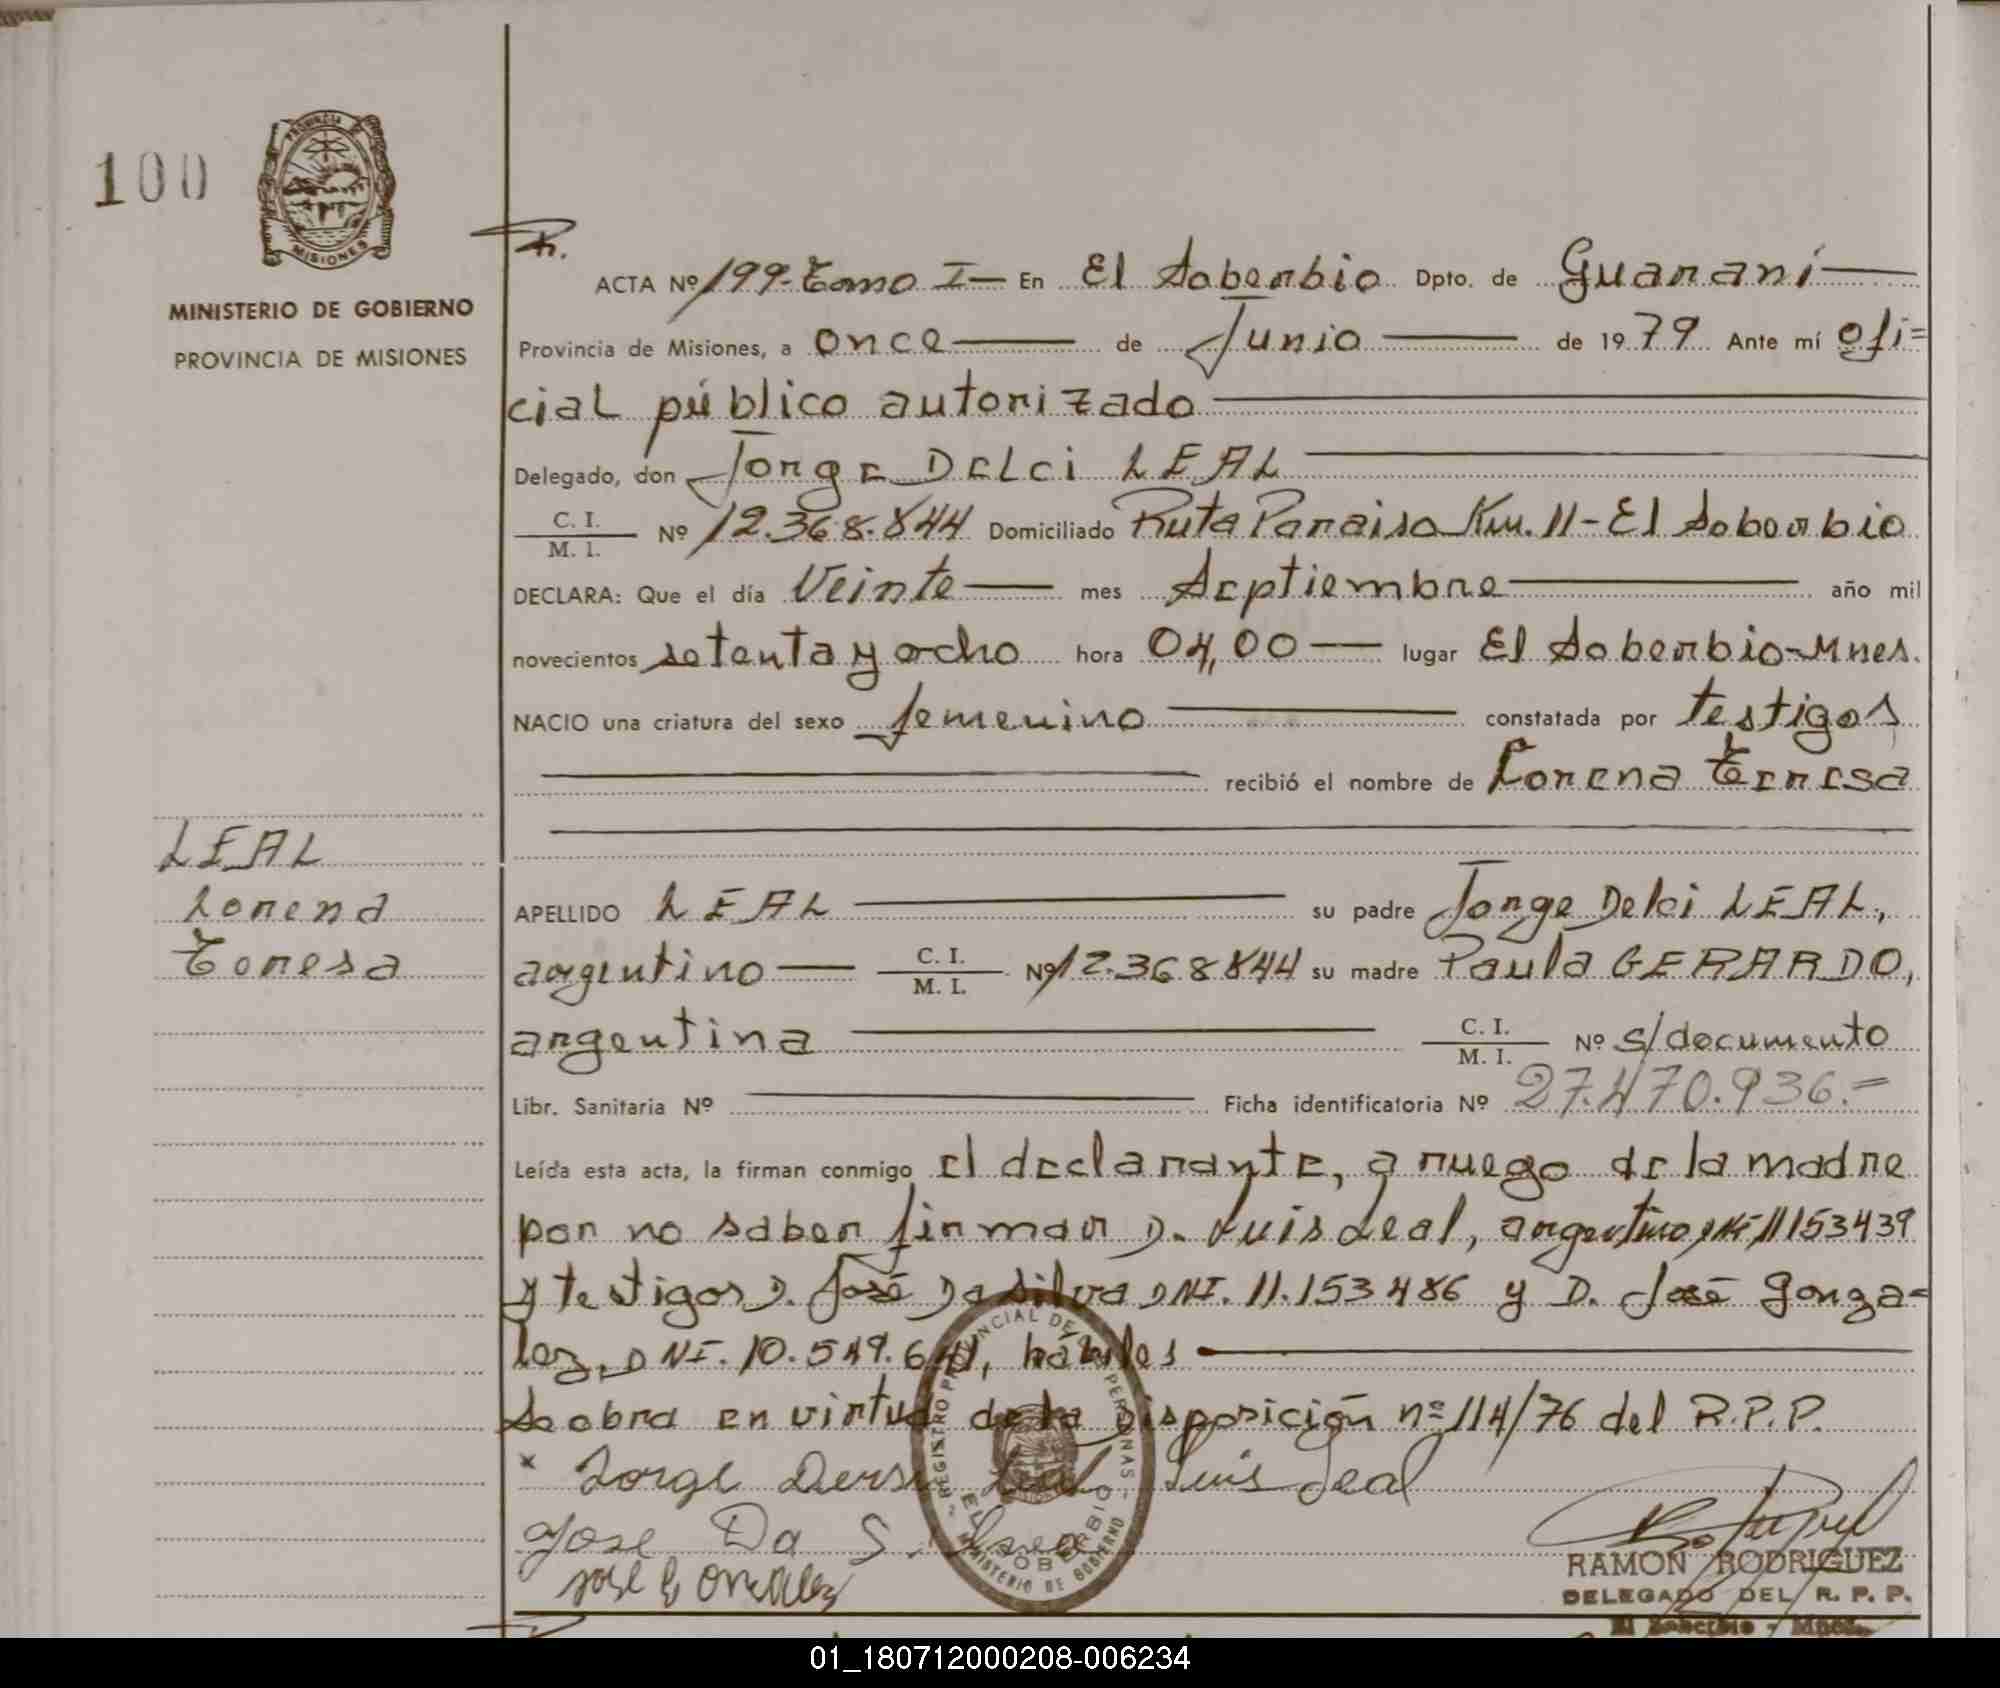 100
PROVINCIA DE
MISIONES
MINISTERIO DE GOBIERNO
PROVINCIA DE MISIONES
ACTA Nº 199-Tomo I- En El Soberbio Dpto. de Guaraní
Provincia de Misiones, a once de Junio de 1979 Ante mí ofi=
cial público autorizado
Delegado, don Jorge Delci LEAL
C. I.
M. I. Nº 12.368.844 Domiciliado Ruta Paraiso Km. 11-El Soberbio
DECLARA: Que el día Veinte mes Septiembre año mil
novecientos setenta y ocho hora 04,00 lugar El Soberbio-Mnes.
NACIO una criatura del sexo femenino constatada por testigos
recibió el nombre de Lorena Teresa
LEAL
Lorena
Teresa
APELLIDO LEAL su padre Jorge Delci LEAL,
argentino C. I.
M. I. Nº 12.368844 su madre Paula GERARDO,
argentina C. I.
M. I. Nº s/documento
Libr. Sanitaria Nº Ficha identificatoria Nº 27.470.936.=
Leída esta acta, la firman conmigo el declarante, a ruego de la madre
por no saber firmar D. Luis Leal, argentino, DNI 11153439
y testigos D. José Da Silva DNI. 11.153486 y D. José Gonza=
lez, DNI. 10.549.641, hábiles
Se obra en virtud de la Disposición nº 114/76 del R.P.P.
x Jorge Leal Luis Leal
Jose Da S.
Jose Gonzalez
REGISTRO PROVINCIAL DE LAS PERSONAS
EL SOBERBIO
MINISTERIO DE GOBIERNO
RAMON RODRIGUEZ
DELEGADO DEL R. P. P.
El Soberbio - Mnes.
01_180712000208-006234